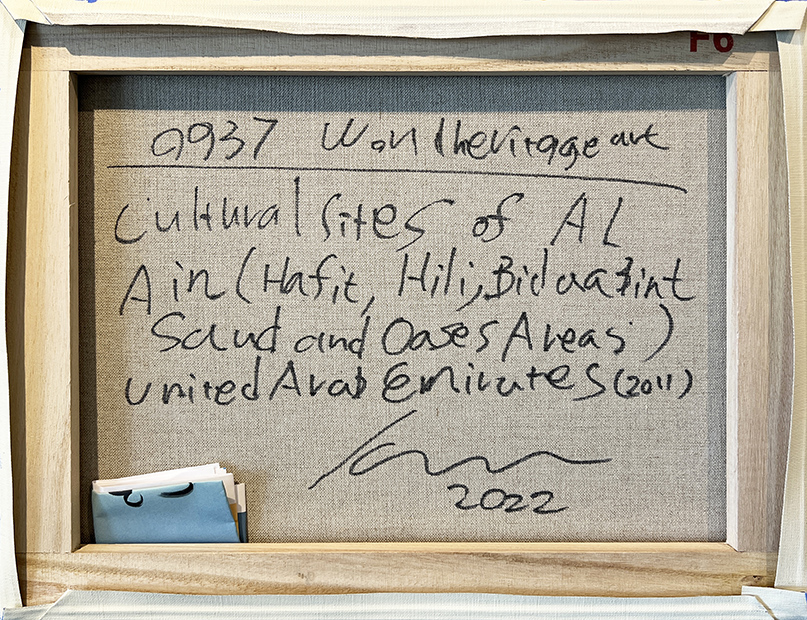 F6
0937 World heritage art
Cultural Sites of AL
Ain (Hafit, Hili, Bidaa Bint
Saud and Oases Areas)
United Arab Emirates (2011)
2022